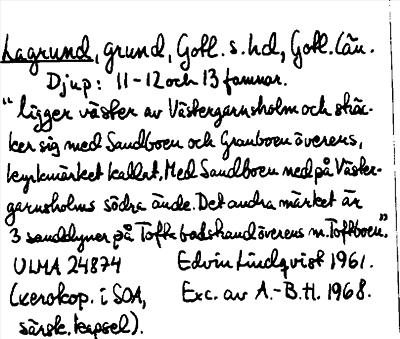 Lagrund, grund, Gotl. s. hd, Gotl. län.
Djup: 11-12 och 13 famnar.
"ligger väster av Västergarnsholm och sträc-
ker sig med Sandboen och Grauboen överens,
kyrkmärket kallat. Med Sandboen ned på Väster-
garnsholms södra ände. Det andra märket är
3 sanddyner på Tofta badstrand överens m. Toftboen".
ULMA 24874 Edvin Lindqvist 1961.
(xerokop. i SOA, Exc. av A.-B.H. 1968.
särsk. kapsel).